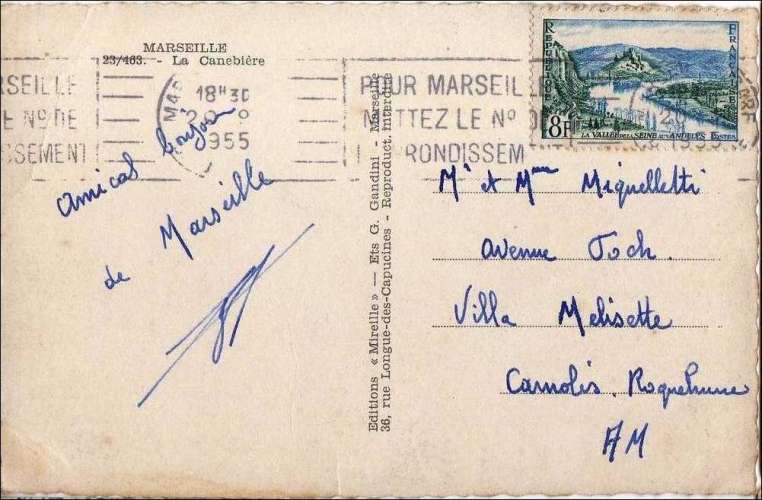 MARSEILLE
23/463. - La Canebière
RSEILLE
E Nº DE
ISSEMENT
18H30
1955
POUR MARSEIL
METTEZ LE Nº D
RONDISSEM
REPUBLIQUE
FRANÇAISE
8F
LA VALLÉE DE LA SEINE AUX ANDELYS
POSTES
amical bonjour
de Marseille
Editions « Mireille » — Ets G. Gandini - Marseille
36, rue Longue-des-Capucines - Reproduct. Interdite
Mr et Mme Miquelletti
Avenue Foch.
Villa Melisette
Carnolès. Roquebrune
AM